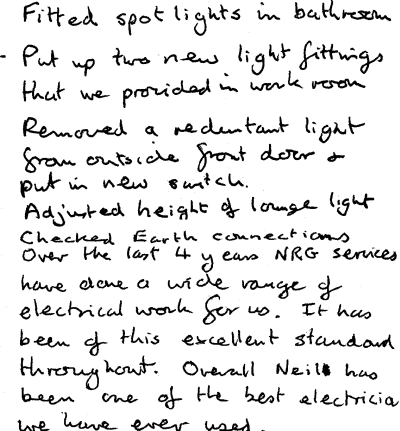 Fitted spot lights in bathroom
- Put up two new light fittings
that we provided in work room
Removed a reduntant light
from outside front door &
put in new switch.
Adjusted height of lounge light
Checked Earth connections
Over the last 4 years NRG services
have done a wide range of
electrical work for us. It has
been of this excellent standard
throughout. Overall Neil has
been one of the best electricia
we have ever used.